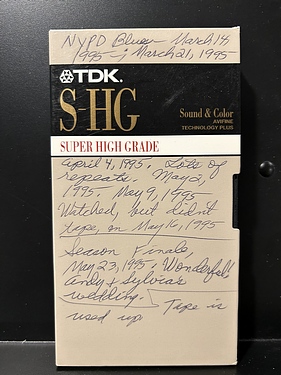 NYPD Blue: March 14,
1995; March 21, 1995
TDK.
S-HG
Sound & Color
AVIFINE
TECHNOLOGY PLUS
SUPER HIGH GRADE
April 4, 1995. Lots of
repeats. May 2,
1995. May 9, 1995
Watched, but didn't
tape, on May 16, 1995
Season Finale,
May 23, 1995. Wonderful!
Andy & Sylvia's
wedding.
Tape is
used up.